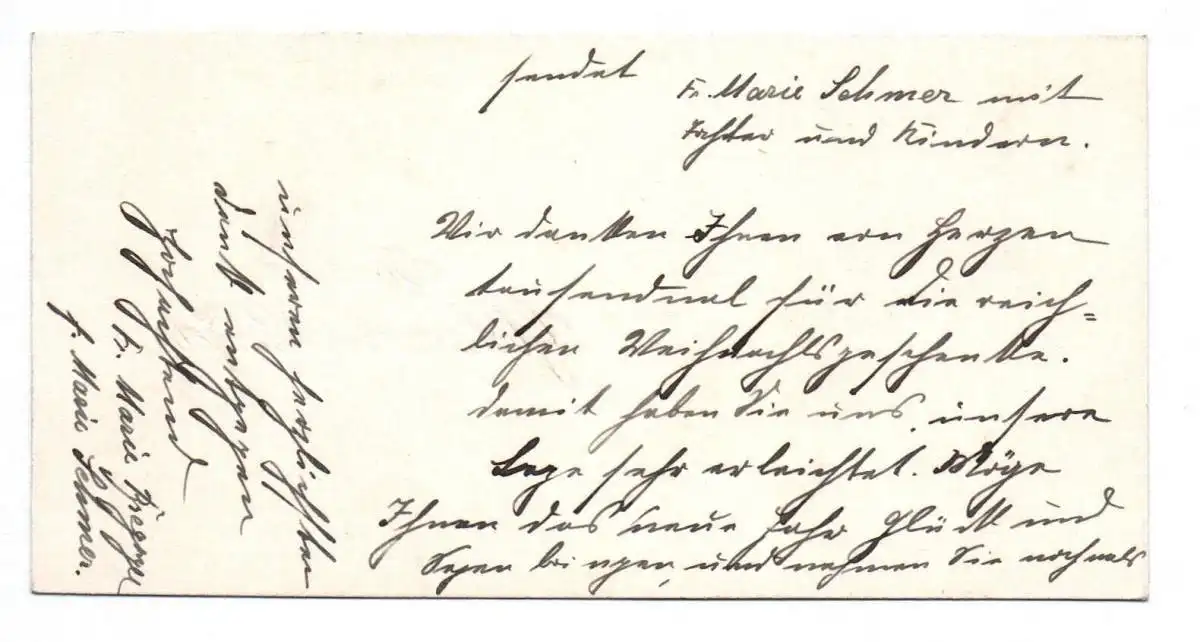 sendet
Fr. Marie Sehmer mit
Tochter und Kindern.
Wir danken Ihnen von Herzen
tausendmal für die reich=
lichen Weihnachtsgeschenke.
damit haben Sie uns, unsere
Lage sehr erleichtet. Möge
Ihnen das neue Jahr Glück und
Segen bringen, und nehmen Sie nochmals
unseren herzlichsten
dank entgegen
Hochachtend
Fr. Marie
F. Marie Sehmer.